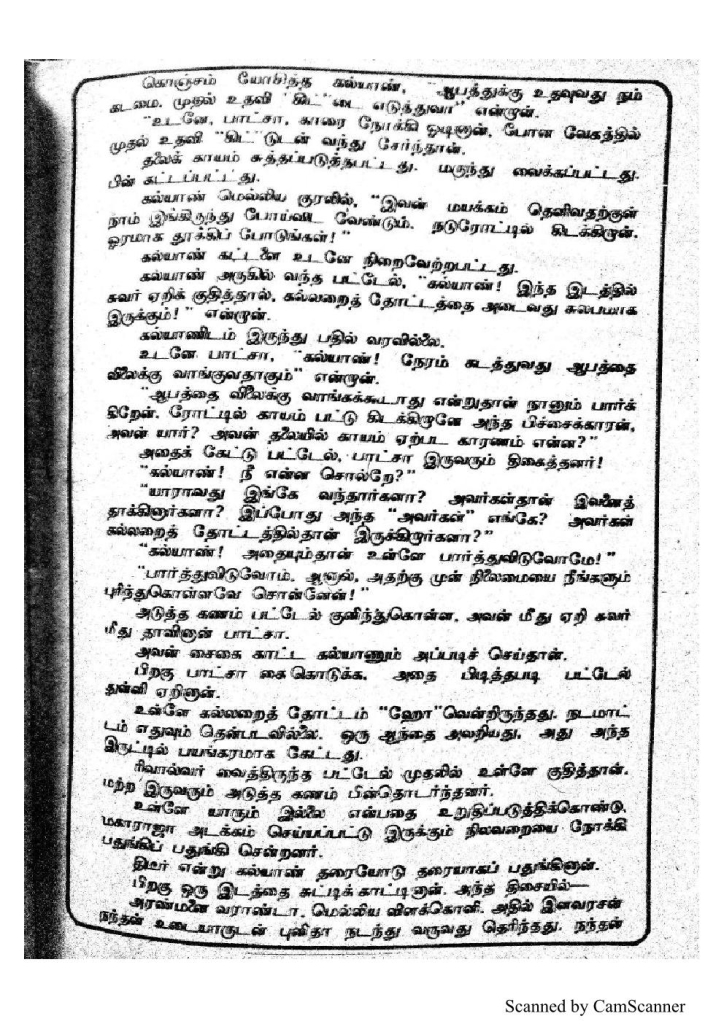 கொஞ்சம் யோசித்த கல்யாண், "ஆபத்துக்கு உதவுவது நம்
கடமை. முதல் உதவி "கிட்"டை எடுத்துவா" என்றான்.
"உடனே, பாட்சா, காரை நோக்கி ஓடினான், போன வேகத்தில்
முதல் உதவி "கிட்"டுடன் வந்து சேர்ந்தான்.
தலைக் காயம் சுத்தப்படுத்தபட்டது. மருந்து வைக்கப்பட்டது.
பின் கட்டப்பட்டது.
கல்யாண் மெல்லிய குரலில், "இவன் மயக்கம் தெளிவதற்குள்
நாம் இங்கிருந்து போய்விட வேண்டும். நடுரோட்டில் கிடக்கிறான்.
ஓரமாக தூக்கிப் போடுங்கள்!"
கல்யாண் கட்டளை உடனே நிறைவேற்றபட்டது.
கல்யாண் அருகில் வந்த பட்டேல், "கல்யாண்! இந்த இடத்தில்
சுவர் ஏறிக் குதித்தால், கல்லறைத் தோட்டத்தை அடைவது சுலபமாக
இருக்கும்!" என்றான்.
கல்யாணிடம் இருந்து பதில் வரவில்லை.
உடனே பாட்சா, "கல்யாண்! நேரம் கடத்துவது ஆபத்தை
விலைக்கு வாங்குவதாகும்" என்றான்.
"ஆபத்தை விலைக்கு வாங்கக்கூடாது என்றுதான் நானும் பார்க்
கிறேன். ரோட்டில் காயம் பட்டு கிடக்கிறானே அந்த பிச்சைக்காரன்,
அவன் யார்? அவன் தலையில் காயம் ஏற்பட காரணம் என்ன?"
அதைக் கேட்டு பட்டேல், பாட்சா இருவரும் திகைத்தனர்!
"கல்யாண்! நீ என்ன சொல்றே?"
"யாராவது இங்கே வந்தார்களா? அவர்கள்தான் இவனைத்
தாக்கினார்களா? இப்போது அந்த "அவர்கள்" எங்கே? அவர்கள்
கல்லறைத் தோட்டத்தில்தான் இருக்கிறார்களா?"
"கல்யாண்! அதையும்தான் உள்ளே பார்த்துவிடுவோமே!"
"பார்த்துவிடுவோம். ஆனால், அதற்கு முன் நிலைமையை நீங்களும்
புரிந்துகொள்ளவே சொன்னேன்!"
அடுத்த கணம் பட்டேல் குனிந்துகொள்ள, அவன் மீது ஏறி சுவர்
மீது தாவினான் பாட்சா.
அவன் சைகை காட்ட கல்யாணும் அப்படிச் செய்தான்.
பிறகு பாட்சா கைகொடுக்க, அதை பிடித்தபடி பட்டேல்
துள்ளி ஏறினான்.
உள்ளே கல்லறைத் தோட்டம் "ஹோ"வென்றிருந்தது. நடமாட்
டம் எதுவும் தென்படவில்லை. ஒரு ஆந்தை அலறியது. அது அந்த
இருட்டில் பயங்கரமாக கேட்டது.
ரிவால்வர் வைத்திருந்த பட்டேல் முதலில் உள்ளே குதித்தான்.
மற்ற இருவரும் அடுத்த கணம் பின்தொடர்ந்தனர்.
உள்ளே யாரும் இல்லை என்பதை உறுதிப்படுத்திக்கொண்டு,
மகாராஜா அடக்கம் செய்யப்பட்டு இருக்கும் நிலவறையை நோக்கி
பதுங்கிப் பதுங்கி சென்றனர்.
திடீர் என்று கல்யாண் தரையோடு தரையாகப் பதுங்கினான்.
பிறகு ஒரு இடத்தை சுட்டிக் காட்டினான். அந்த திசையில்—
அரண்மனை வராண்டா. மெல்லிய விளக்கொளி. அதில் இளவரசன்
நந்தன் உடையாருடன் புனிதா நடந்து வருவது தெரிந்தது. நந்தன்
Scanned by CamScanner